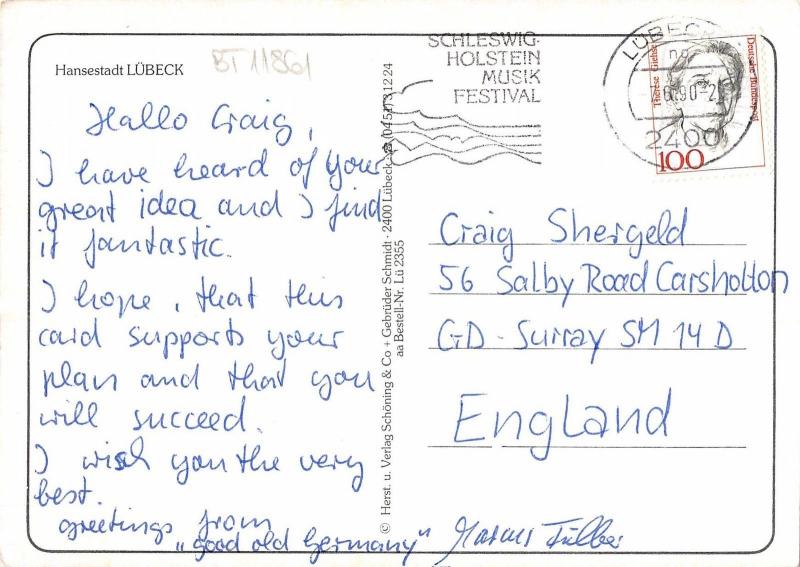 Hansestadt LÜBECK
BT 11861
Hallo Craig,
I have heard of your
great idea and I find
it fantastic.
I hope, that this
card supports your
plan and that you
will succeed.
I wish you the very
best.
greetings from
"good old Germany"
© Herst. u. Verlag Schöning & Co + Gebrüder Schmidt · 2400 Lübeck · ☎ (0451) 31224
aa Bestell-Nr. Lü 2355
SCHLESWIG-
HOLSTEIN
MUSIK
FESTIVAL
LÜBECK
2400
Therese Giehse
Deutsche Bundespost
100
Craig Shergeld
56 Salby Road Carsholton
GD - Surray SM 14 D
England